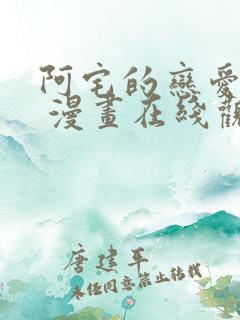 阿宅的戀愛
漫畫在线觀
唐建平
未经同意禁止转载